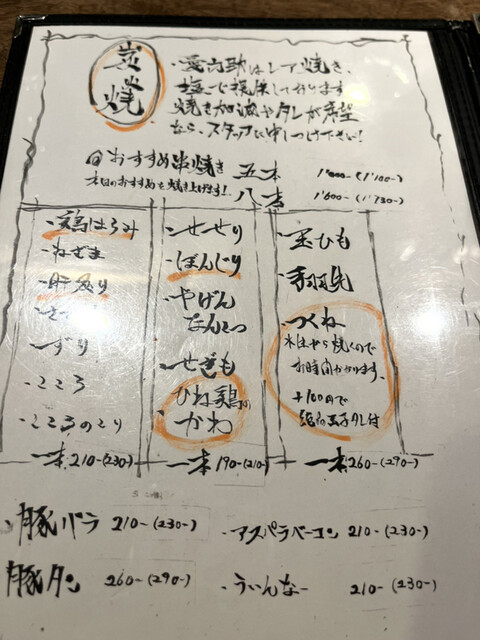 炭火焼
・愛六助はレア焼き、
塩で提供して行ります
焼き加減やタレが希望
なら、スタッフに申しつけ下さい!
おすすめ串焼き 五本 1'000-(1'100-)
本日のおすすめを焼き上げます! 八本 1'600-(1'730-)
・鶏はらみ
ねぎま
・肝
ずり
こころ
こころのこり
一本 210-(230-)
・せせり
・ぼんじり
・やげん
なんこつ
・せぎも
ひね鶏の
かわ
一本 190-(210-)
・玉ひも
・手羽先
・つくね
焼くので
お時間かかります。
+100円で
玉子タレ付
一本 260-(290-)
・豚バラ 210-(230-)
・アスパラベーコン 210-(230-)
豚タン 260-(290-)
・ういんなー 210-(230-)